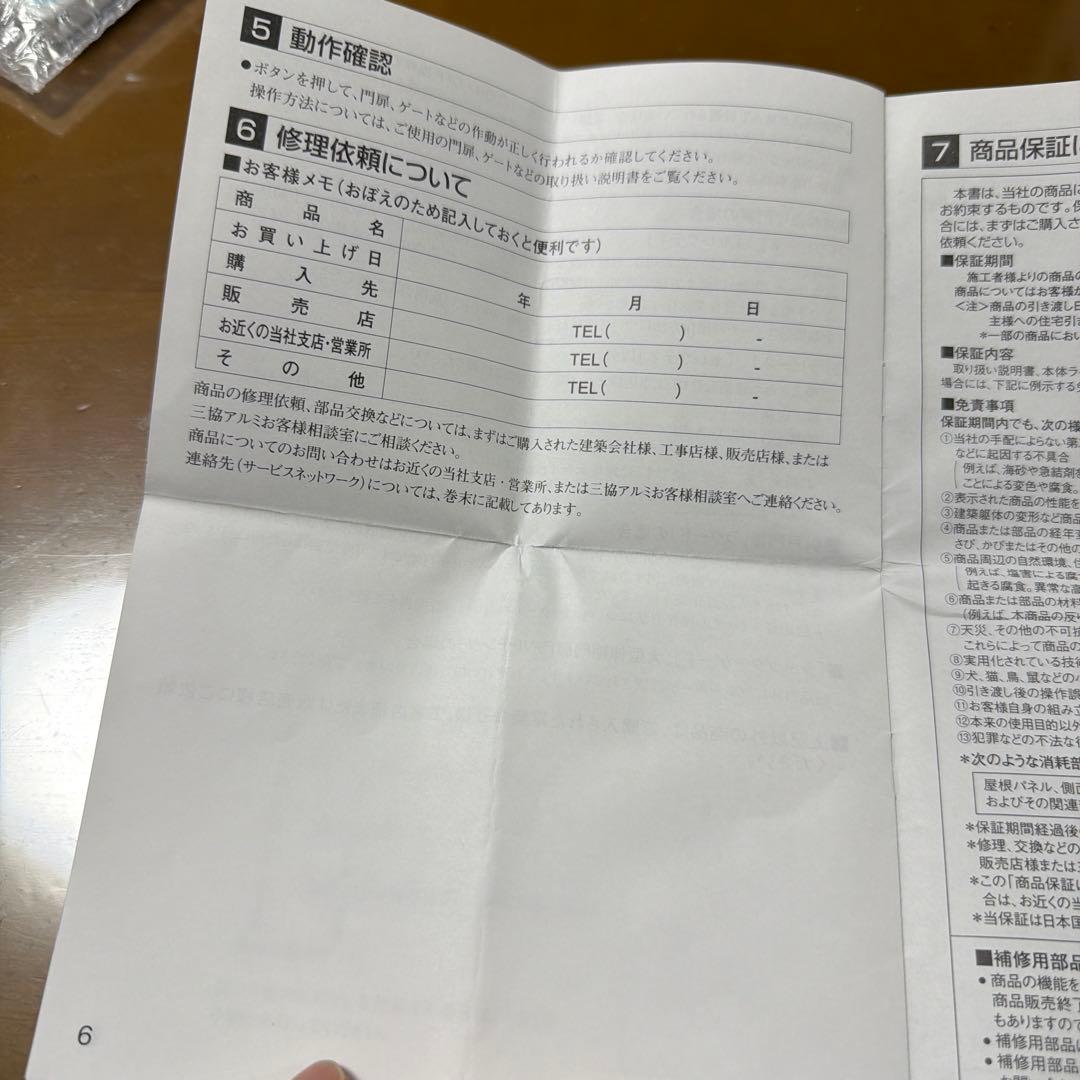 5 動作確認
●ボタンを押して、門扉、ゲートなどの作動が正しく行われるか確認してください。
操作方法については、ご使用の門扉、ゲートなどの取り扱い説明書をご覧ください。
6 修理依頼について
■お客様メモ(おぼえのため記入しておくと便利です)
商品名
お買い上げ日 年 月 日
購入先 TEL( ) -
販売店 TEL( ) -
お近くの当社支店・営業所 TEL( ) -
その他
商品の修理依頼、部品交換などについては、まずはご購入された建築会社様、工事店様、販売店様、または
三協アルミお客様相談室にご相談ください。
商品についてのお問い合わせはお近くの当社支店・営業所、または三協アルミお客様相談室へご連絡ください。
連絡先(サービスネットワーク)については、巻末に記載してあります。
6
7 商品保証に
本書は、当社の商品に
お約束するものです。保
合には、まずはご購入さ
依頼ください。
■保証期間
施工者様よりの商品の
商品についてはお客様が
<注>商品の引き渡し日
主様への住宅引き
*一部の商品におい
■保証内容
取り扱い説明書、本体ラ
場合には、下記に例示する免
■免責事項
保証期間内でも、次の様
①当社の手配によらない第
などに起因する不具合
例えば、海砂や急結剤
ことによる変色や腐食。
②表示された商品の性能を
③建築躯体の変形など商品
④商品または部品の経年
さび、かびまたはその他の
⑤商品周辺の自然環境、住
例えば、塩害による腐
起きる腐食。異常な高
⑥商品または部品の材料
(例えば、本商品の反り
⑦天災、その他の不可抗
これらによって商品の
⑧実用化されている技術
⑨犬、猫、鳥、鼠などの小
⑩引き渡し後の操作誤
⑪お客様自身の組み立
⑫本来の使用目的以外
⑬犯罪などの不法な行
*次のような消耗部
屋根パネル、側面
およびその関連
*保証期間経過後
*修理、交換などの
販売店様または三
*この「商品保証に
合は、お近くの当
*当保証は日本国
■補修用部品
●商品の機能を
商品販売終了
もありますので
●補修用部品
●補修用部品